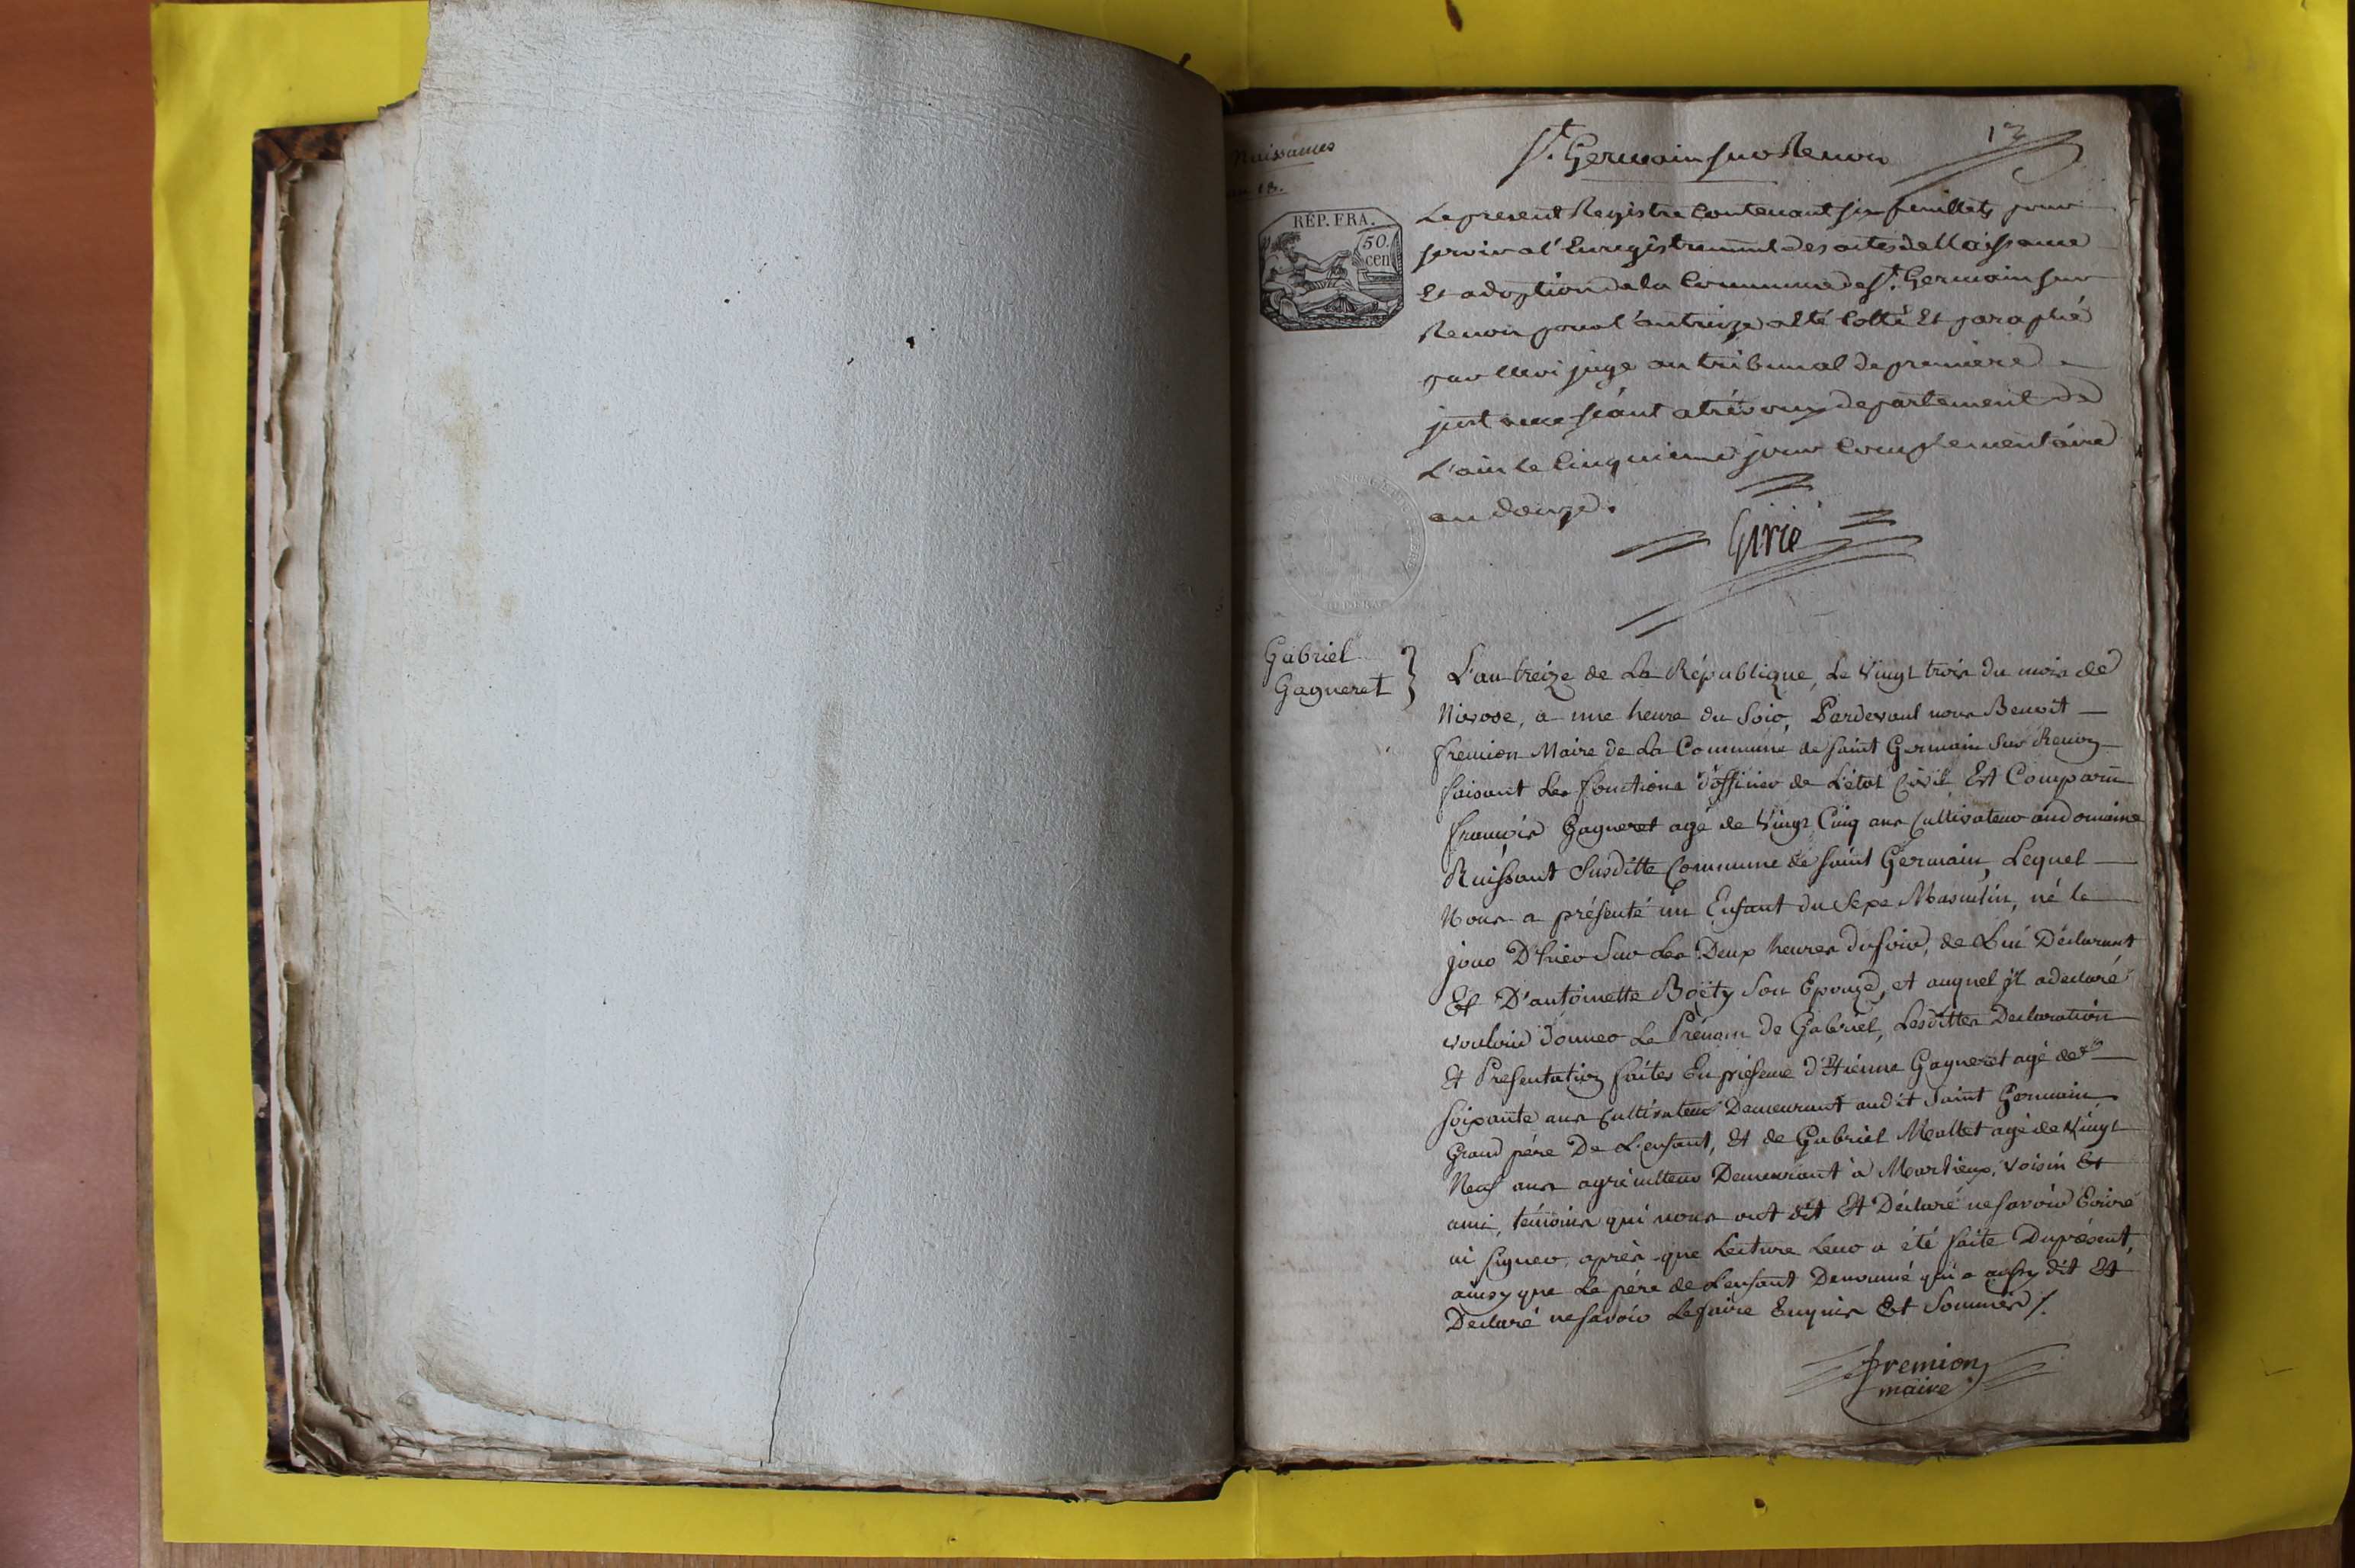 Naissances
an 13.
St. Germain sur Renon
13
RÉP. FRA.
50.
cen
Le present Registre Contenant six feuillets pour
servir a l'Enregistrement des actes de Naissance
Et adoption de la Commune de St. Germain sur
Renon pour l'an treize a été Cotté Et paraphé
par Moi juge au tribunal de premiere
instance séant a trévoux departement de
L'ain le Cinquieme jour Complementaire
an douze.
Girié
Gabriel
Gagneret
L'an treize de La République, Le Vingt trois du mois de
Nivose, a une heure du Soir, Pardevant nous Benoit
fremion Maire de La Commune de Saint Germain Sur Renon
faisant Les fonctions d'officier de L'état Civil, Est Comparu
françois Gagneret agé de Vingt Cinq ans Cultivateur au domaine
Ruissant Susditte Commune de Saint Germain, Lequel
Nous a présenté un Enfant du Sexe Masculin, né le
jour D'hier Sur Les Deux heures du soir, de Lui Déclarant
Et D'antoinette Boëty Son Epouze, et auquel il a declaré
vouloir donner Le Prénom de Gabriel, Lesdittes Declaration
Et Presentation faites En présence d'Etienne Gagneret agé de
soixante ans Cultivateur Demeurant audit Saint Germain
Grand père De L'enfant, Et de Gabriel Mallet agé de Vingt
Neuf ans agriculteur Demeurant à Marlieux, voisin Et
ami, témoins qui nous ont dit Et Déclaré ne savoir Ecrire
ni Signer, après que Lecture Leur a été faite Du présent,
ainsy que Le père de L'enfant Denommé qui a aussy dit Et
Declaré ne savoir Le faire Enquis Et Sommés /.
fremion
maire